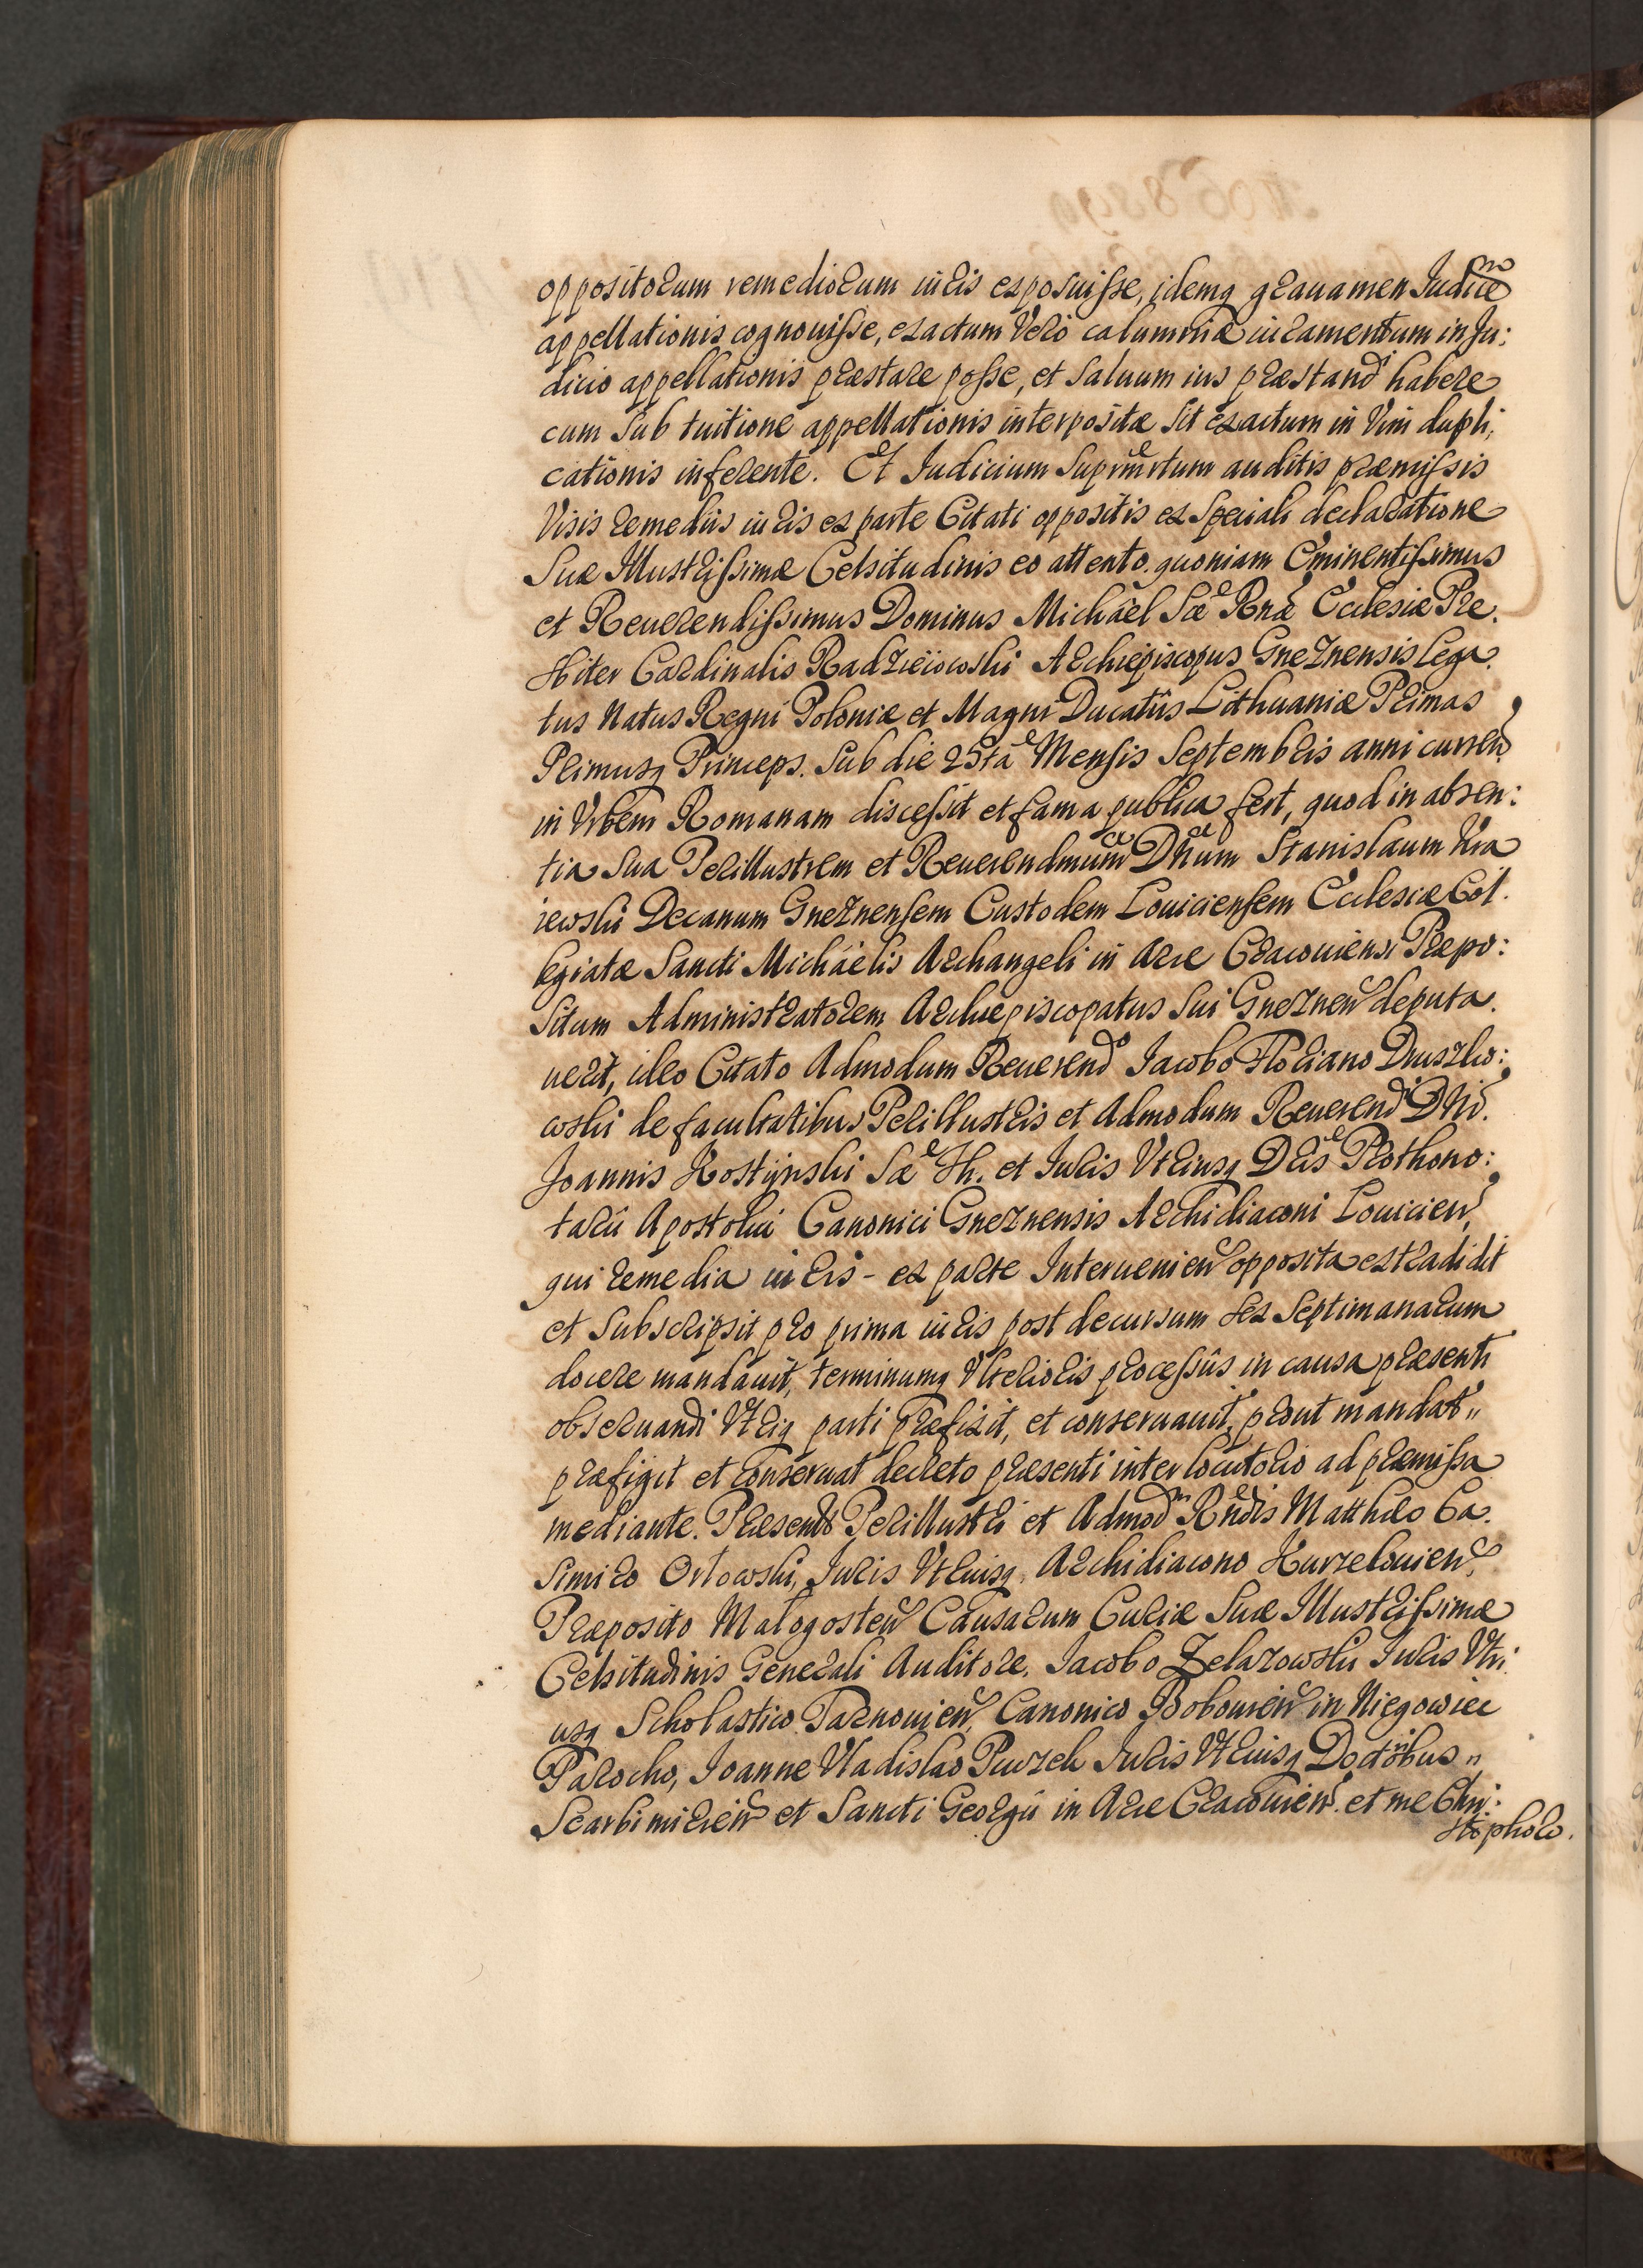 oppositorum remediorum iuris exposuisse, idemq grauamen Judice
appellationis cognouisse, exactum Vero calumniæ iuramentum in Ju:
dicio appellationis præstare posse, et Saluum ius præstandi habere
cum Sub tuitione appellationis interpositæ Sit exactum in Vim dupli;
cationis inferente. Et Iudicium Suprmrtum auditis præmissis
Visis remediis iuris ex parte Citati oppositis ex Speciali declaratione
Suæ Illustrissimæ Celsitudinis eo attento. quoniam Eminentissimus
et Reuerendissimus Dominus Michäel Sæ Rnæ Ecclesiæ Pre.
sbiter Cardinalis Radzieiowski Archiepiscopus Gneznensis Lega.
tus Natus Regni Poloniæ et Magni Ducatûs Lithuaniæ Primas
Primusq Princeps. Sub die 25ta Mensis Septembris anni curren
in Vrbem Romanam discessit et fama publica fert, quod in absen:
tia Sua Perillustrem et Reuerendmum Dnum Stanislaum Kra
iewski Decanum Gneznensem Custodem Louiciensem Ecclesiæ Col.
legiatæ Sancti Michäelis Archangeli in Arce Cracouiensi Præpo:
Situm Administratorem Archiepiscopatus Sui Gneznen deputa.
uerit, ideo Citato Admodum Reuerendo Iacobo Floriano Druszko:
wski de facultatibus Perillustris et Admodum Reuerendi Dni.
Joannis Kostynski Sæ Th. et Iuris Vtriusq Dris Prothono:
tarii Apostolici Canonici Gneznensis Archidiaconi Louicien,
qui remedia iuris - ex parte Interuenien opposita extradidit
et Subscripsit pro prima iuris post decursum Sex Septimanarum
docere mandauit, terminumq Vlterioris processûs in causa præsenti
obseruandi Vtriq parti præfixit, et conseruauit, prout mandat"
præfigit et conseruat decreto præsenti interlocutorio ad præmissa
mediante. Præsente Perillustri et Admod Rndis Matthæo Ca.
Simiro Orlowski, Iuris Vtriusq. Archidiacono Kurzelouien,
Præposito Malogosten Causarum Curiæ Suæ Illustrissimæ
Celsitudinis Generali Auditore. Iacobo Zelazowski Iuris Vtri
usq Scholastico Tarnouien, Canonico Bobouien in Niegowiec
Parocho, Ioanne Vladislao Purzek Iuris Vtriusq Doctoribus"
Scarbimirien et Sancti Georgii in Arce Cracouien. et me Chri:
stophoro.